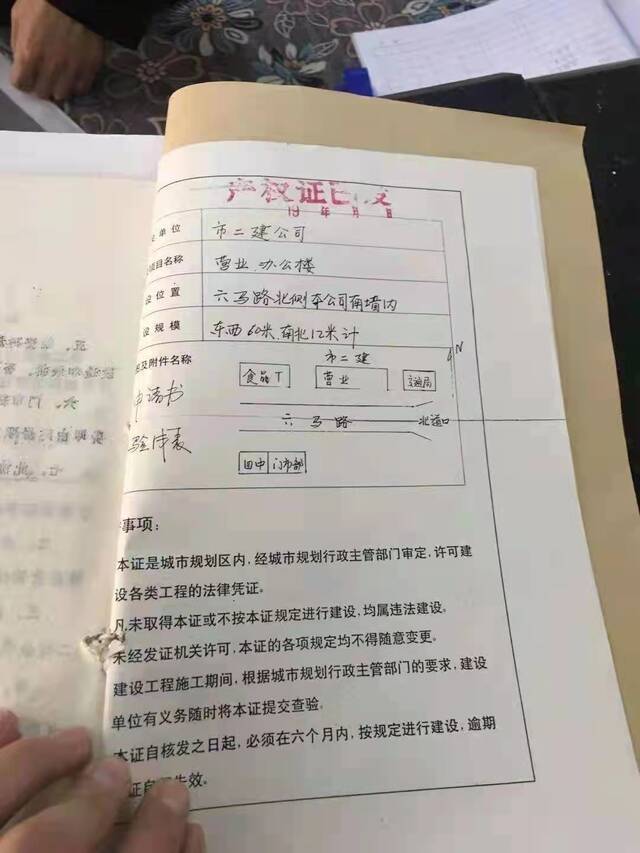 产权证已发
19 年 月 日
单位 市二建公司
项目名称 营业办公楼
设位置 六马路北侧本公司南墙内
设规模 东西60米,南北12米计
及附件名称
申请书
验线申表
市二建
N
食品厂 营业 交通局
六马路 北道口
田中 门市部
事项:
本证是城市规划区内,经城市规划行政主管部门审定,许可建
设各类工程的法律凭证。
凡未取得本证或不按本证规定进行建设,均属违法建设。
未经发证机关许可,本证的各项规定均不得随意变更。
建设工程施工期间,根据城市规划行政主管部门的要求,建设
单位有义务随时将本证提交查验。
本证自核发之日起,必须在六个月内,按规定进行建设,逾期
证自 失效。